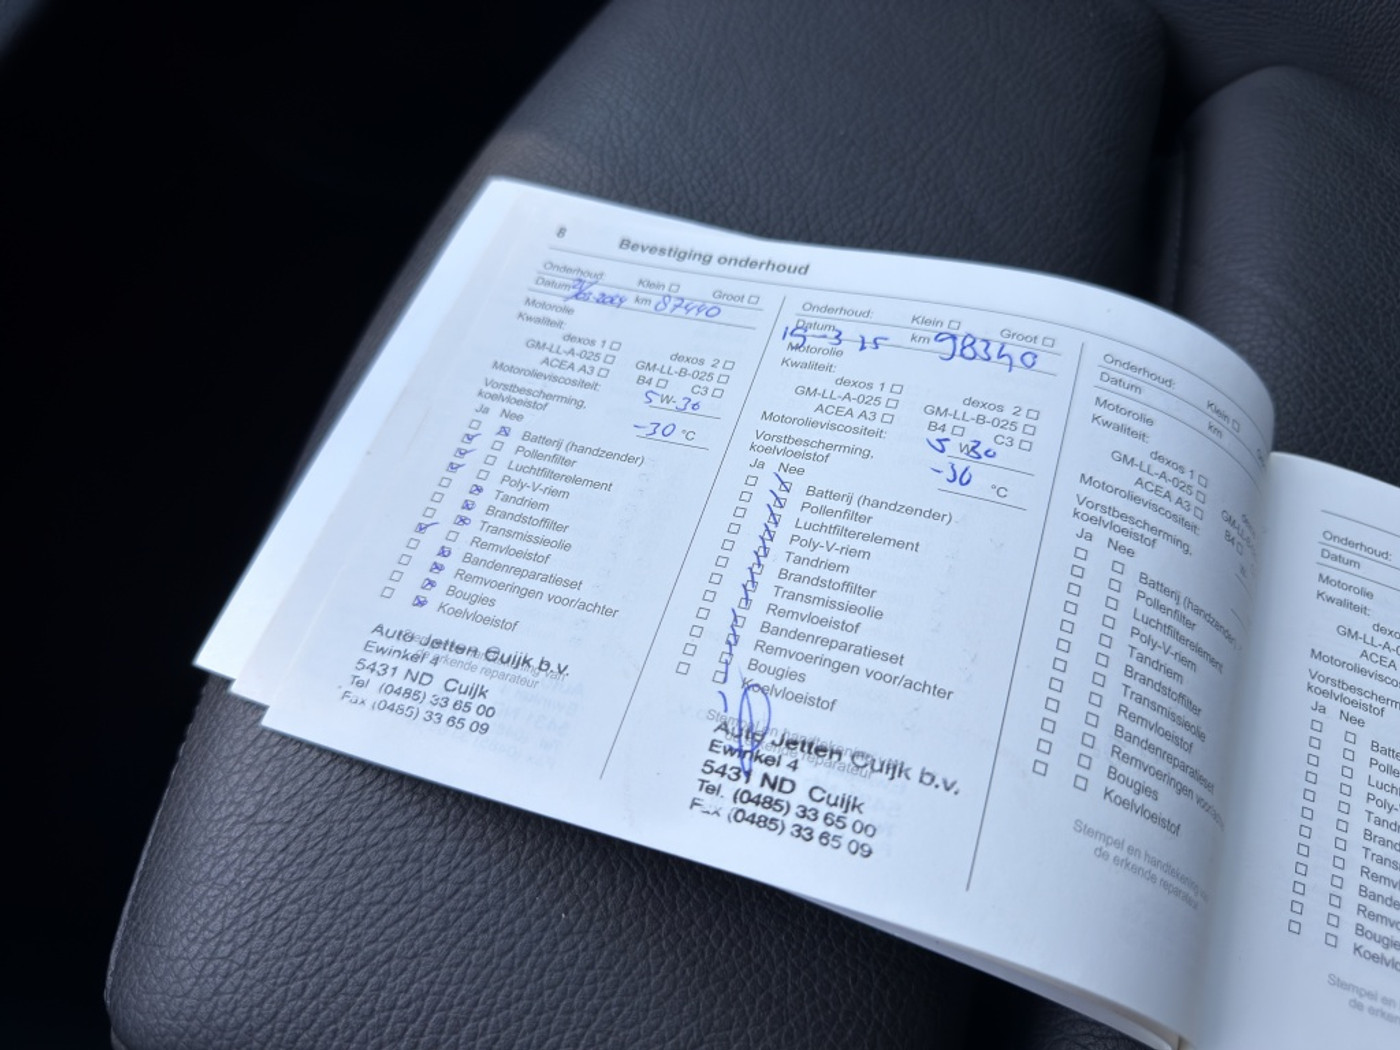 8 Bevestiging onderhoud
Onderhoud: Klein Groot
Datum km 87440
Motorolie
Kwaliteit:
dexos 1 dexos 2
GM-LL-A-025 GM-LL-B-025
ACEA A3 B4 C3
Motorolieviscositeit: 5 W-30
Vorstbescherming,
koelvloeistof -30 °C
Ja Nee
Batterij (handzender)
Pollenfilter
Luchtfilterelement
Poly-V-riem
Tandriem
Brandstoffilter
Transmissieolie
Remvloeistof
Bandenreparatieset
Remvoeringen voor/achter
Bougies
Koelvloeistof
Auto Jetten Cuijk b.v.
de erkende reparateur
Ewinkel 4
5431 ND Cuijk
Tel (0485) 33 65 00
Fax (0485) 33 65 09
Onderhoud: Klein Groot
Datum km 98340
Motorolie
Kwaliteit:
dexos 1 dexos 2
GM-LL-A-025 GM-LL-B-025
ACEA A3 B4 C3
Motorolieviscositeit: 5 W30
Vorstbescherming,
koelvloeistof -30 °C
Ja Nee
Batterij (handzender)
Pollenfilter
Luchtfilterelement
Poly-V-riem
Tandriem
Brandstoffilter
Transmissieolie
Remvloeistof
Bandenreparatieset
Remvoeringen voor/achter
Bougies
Koelvloeistof
Stempel en handtekening
Auto Jetten Cuijk b.v.
de erkende reparateur
Ewinkel 4
5431 ND Cuijk
Tel. (0485) 33 65 00
Fax (0485) 33 65 09
Onderhoud: Klein
Datum km
Motorolie
Kwaliteit:
dexos 1
GM-LL-A-025
ACEA A3 B4
Motorolieviscositeit:
Vorstbescherming,
koelvloeistof
Ja Nee
Batterij (handzender)
Pollenfilter
Luchtfilterelement
Poly-V-riem
Tandriem
Brandstoffilter
Transmissieolie
Remvloeistof
Bandenreparatieset
Remvoeringen
Bougies
Koelvloeistof
Stempel en handtekening
de erkende reparateur
Onderhoud:
Datum
Motorolie
Kwaliteit:
GM-LL-A-0
ACEA
Motorolievisco
Vorstbescherm
koelvloeistof
Ja Nee
Batte
Polle
Lucht
Poly
Tand
Brand
Trans
Remv
Bande
Remvo
Bougi
Koelvlo
Stempel en hand
de erken